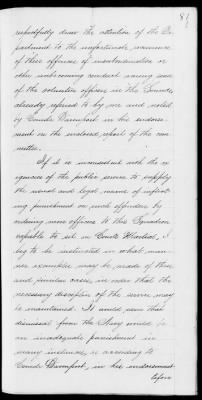 87
respectfully draw the attention of the De-
partment to the unfortunate
of these offences of insubordination or
other unbecoming conduct among some
of the volunteer officers in this Command,
already referred to by me and noted
by Comdr. Davenport in his endorse-
ment on the enclosed report of the com-
mittee.
If it is inconsistent with the ex-
igencies of the public service to supply
the usual and legal means of inflict-
ing punishment on such offenders by
ordering more officers to this Squadron
capable to sit in Courts Martial, I
beg to be instructed in what man-
ner examples may be made of these
and similar cases, in order that the
necessary discipline of the service may
be maintained. It would seem that
dismissal from the Navy would be
an inadequate punishment in
many instances, as according to
Comdr. Davenport, in his endorsement
before